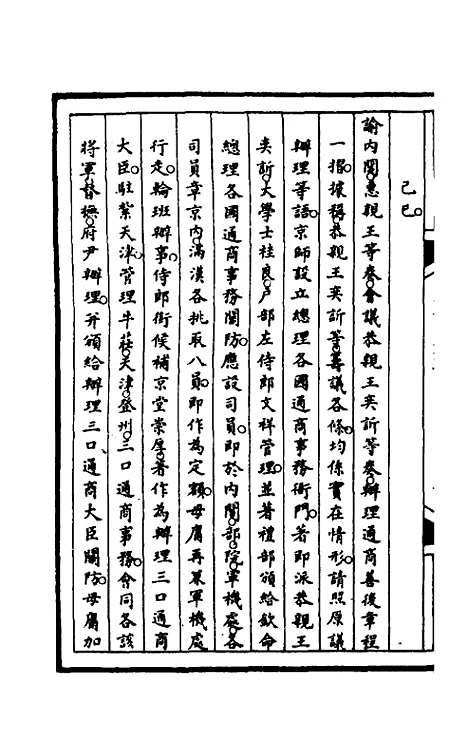 己巳。
諭內閣。惠親王等奏。會議恭親王奕訢等奏。辦理通商善後章程
一摺。據稱。恭親王奕訢等。籌議各條。均係實在情形。請照原議
辦理等語。京師設立總理各國通商事務衙門。著即派恭親王
奕訢。大學士桂良。戶部左侍郎文祥管理。並著禮部頒給欽命
總理各國通商事務關防。應設司員。即於內閣。部。院。軍機處。各
司員章京內。滿漢各挑取八員。即作為定額。毋庸再兼軍機處
行走。輪班辦事。侍郎銜候補京堂崇厚。著作為辦理三口通商
大臣。駐紮天津。管理牛莊。天津。登州。三口通商事務。會同各該
將軍。督撫。府尹辦理。并頒給辦理三口、通商大臣關防。毋庸加